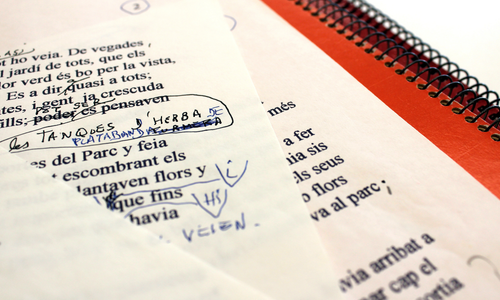 2
ot ho veia. De vegades,
l jardí de tots, que els
lor verd és bo per la vista.
Es a dir, quasi a tots;
tes, i gent ja crescuda
ills; poder es pensaven
les TANQUES d'HERBA DE
PLATABANDA
es del Parc y feia
t escombrant els
lantaven flors y i
que fins Hi
havia
VEIEN.
més
a fer
nia sis
ls seus
flors
va al parc;
avia arribat a
ar cap el
ertia